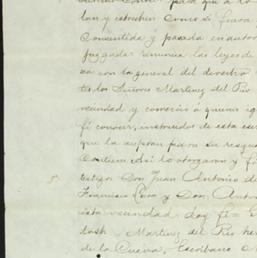 para que a lo
lan y estrechen como si fuera
consentida y pasada en autor
juzgada renuncia las leyes de
za con la general del derecho
te los Señores Martinez del Rio
vecindad y comercio á quienes
fé conozco, instruidos de esta
que la aceptan para su resguardo
asi lo otorgaron y
testigos Don Juan Antonio de
Francisco y Don Antonio
esta vecindad doy fé =
dosh = Martinez del Rio her
de la Cueva, Escribano